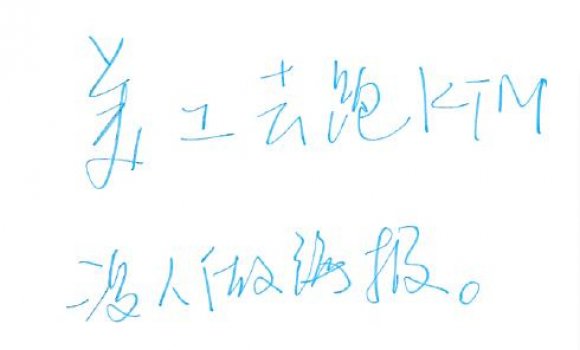 美工去跑KTM
没人做海报。